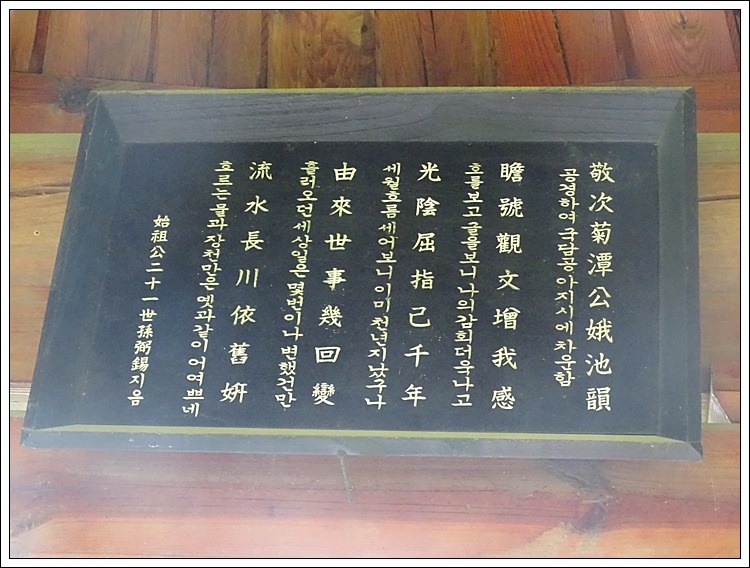 敬次菊潭公娥池韻
공경하여 국담공 아지시에 차운함
瞻號觀文增我感
호를보고 글을보니 나의감회더욱나고
光陰屈指已千年
세월흐름 세어보니 이미 천년지났구나
由來世事幾回變
흘러오던 세상일은 몇번이나 변했건만
流水長川依舊姸
흐르는물과 장천만은 옛과같이 어여쁘네
始祖公二十一世孫 弼錫 지음